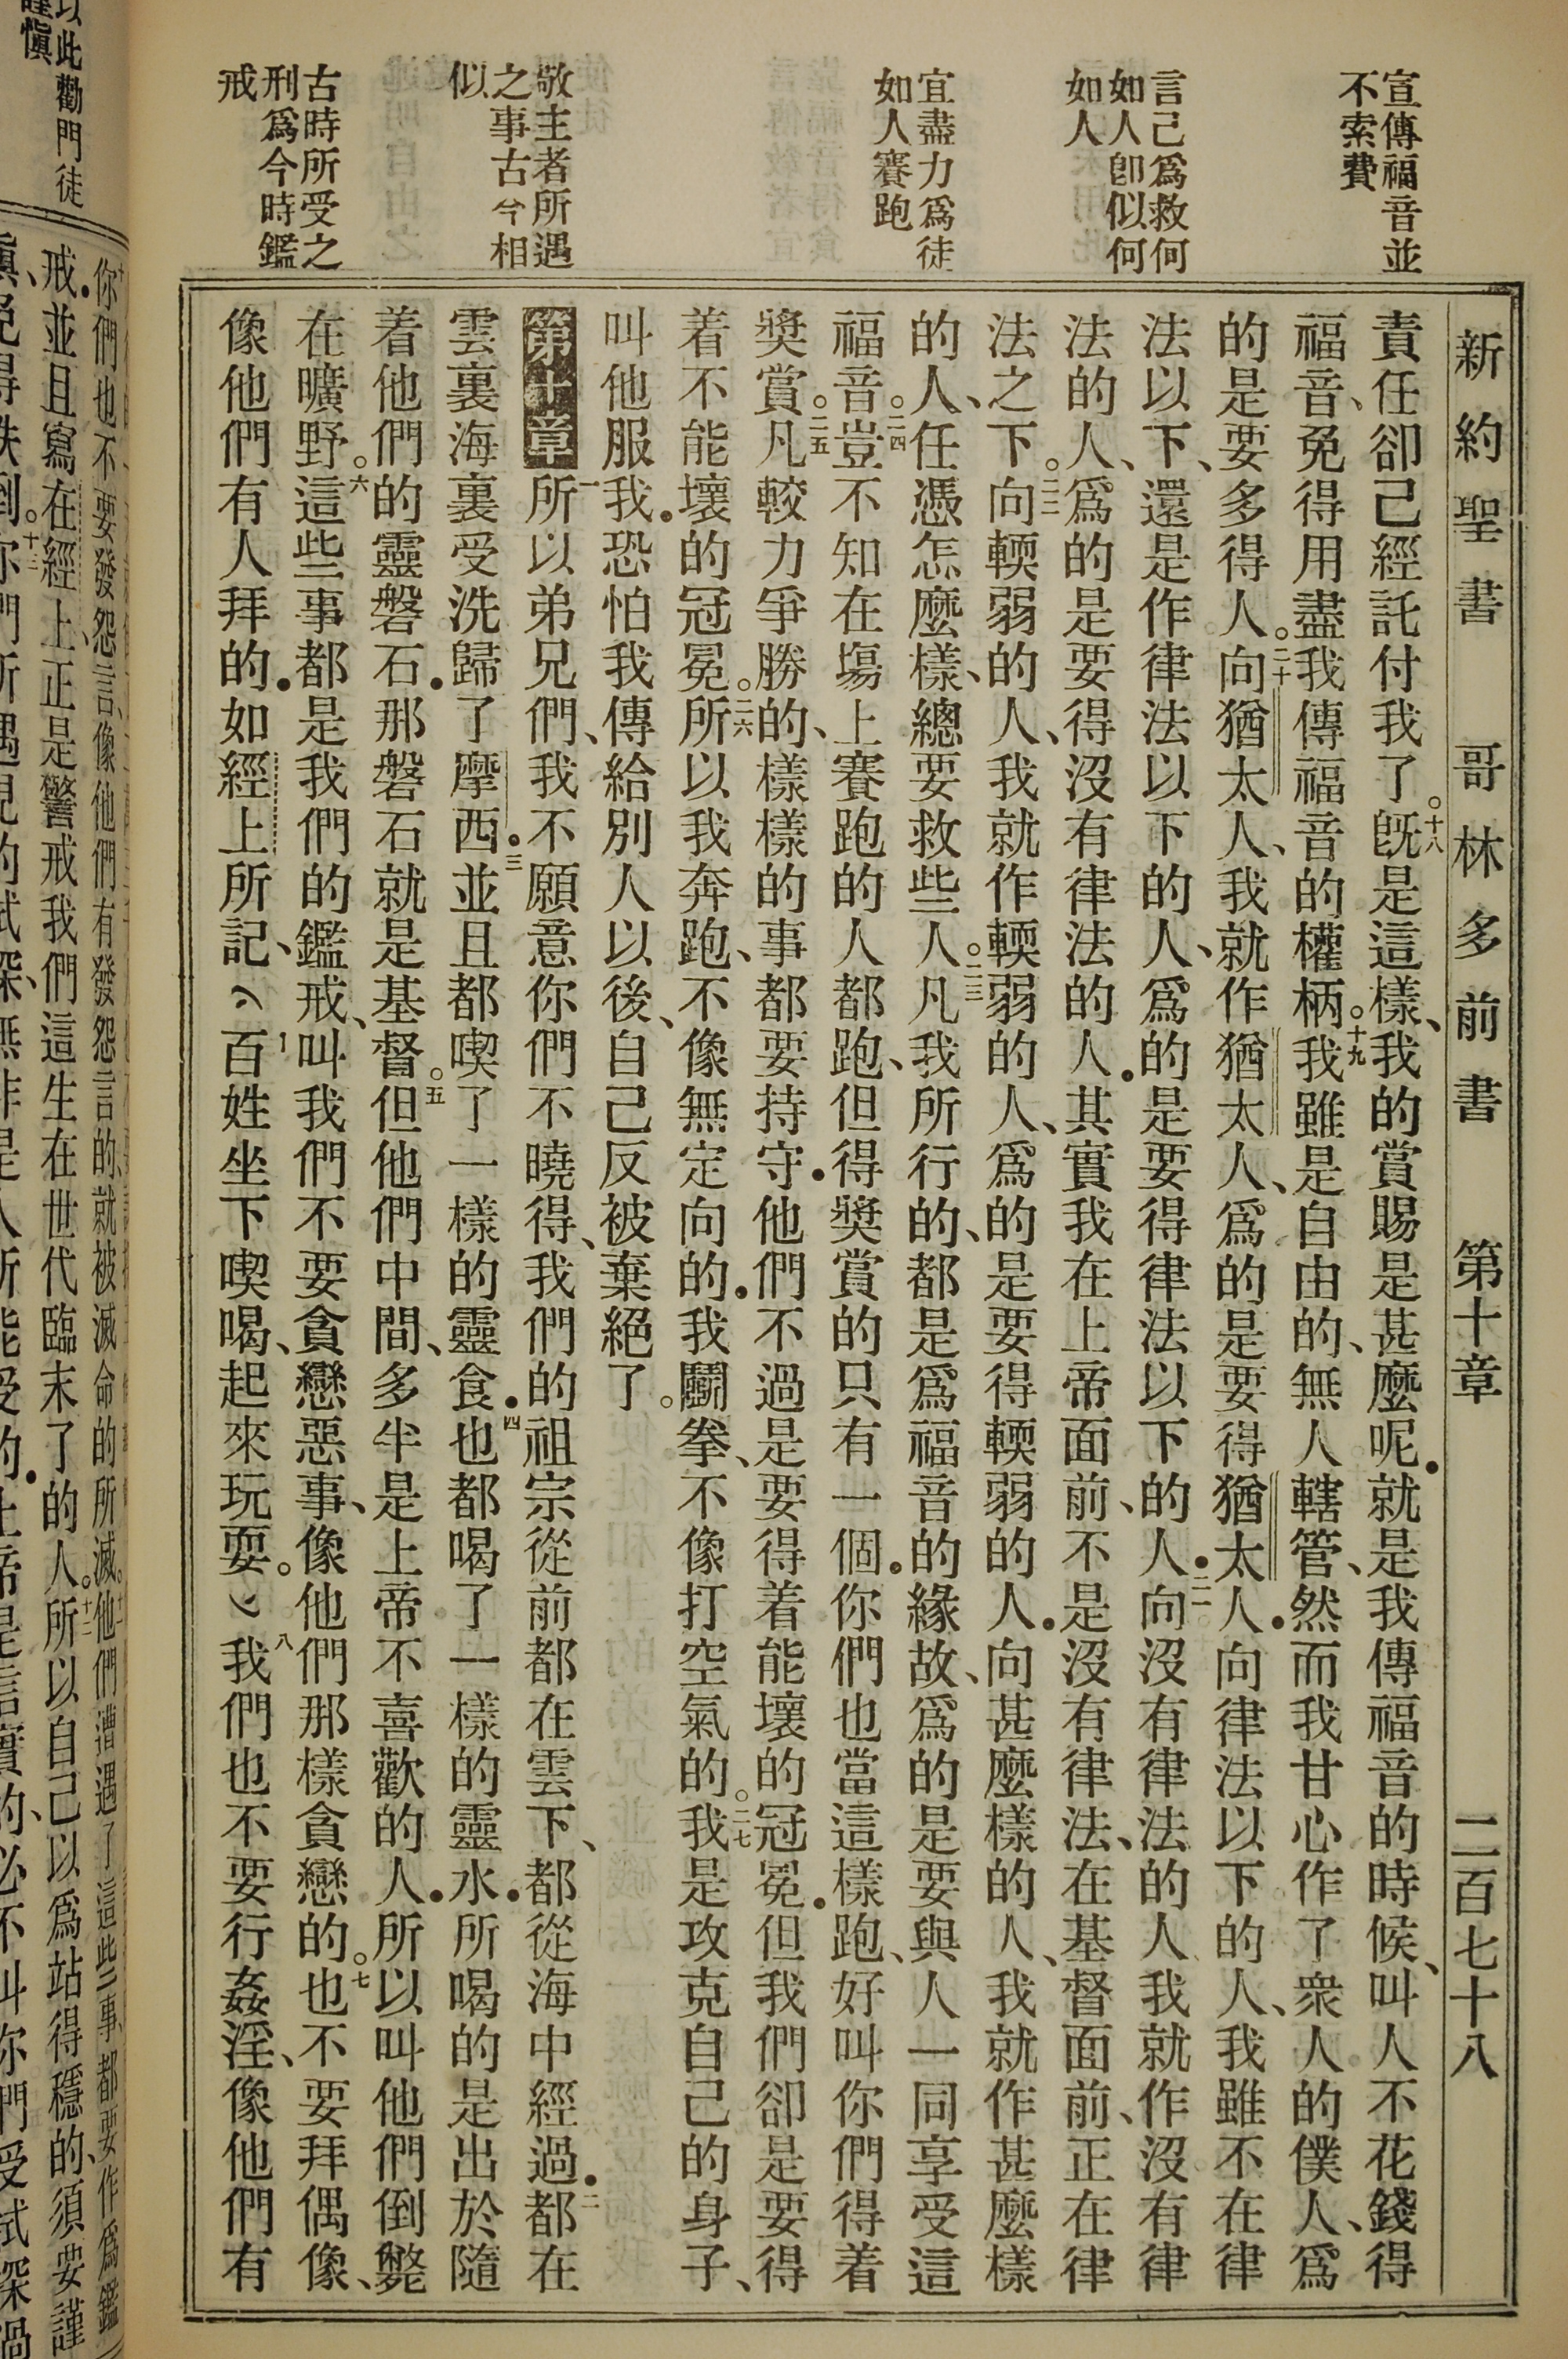 新約聖書 哥林多前書 第十章 二百七十八
宣傳福音並
不索費
言己爲救何
如人卽似何
如人
宜盡力爲徒
如人賽跑
敬主者所遇
之事古今相
似
古時所受之
刑爲今時鑑
戒
責任卻已經託付我了。十八旣是這樣、我的賞賜是甚麼呢．就是我傳福音的時候、叫人不花錢得
福音、免得用盡我傳福音的權柄。十九我雖是自由的、無人轄管、然而我甘心作了衆人的僕人、爲
的是要多得人。二十向猶太人、我就作猶太人、爲的是要得猶太人．向律法以下的人、我雖不在律
法以下、還是作律法以下的人、爲的是要得律法以下的人．二一向沒有律法的人我就作沒有律
法的人、爲的是要得沒有律法的人．其實我在上帝面前、不是沒有律法、在基督面前、正在律
法之下。二二向輭弱的人、我就作輭弱的人、爲的是要得輭弱的人．向甚麼樣的人、我就作甚麼樣
的人、任憑怎麼樣、總要救些人。二三凡我所行的、都是爲福音的緣故、爲的是要與人一同享受這
福音。二四豈不知在塲上賽跑的人都跑、但得獎賞的只有一個．你們也當這樣跑、好叫你們得着
獎賞。二五凡較力爭勝的、樣樣的事都要持守．他們不過是要得着能壞的冠冕．但我們卻是要得
着不能壞的冠冕。二六所以我奔跑、不像無定向的．我鬬拳、不像打空氣的。二七我是攻克自己的身子、
叫他服我．恐怕我傳給別人以後、自己反被棄絕了。
第十章 一所以弟兄們、我不願意你們不曉得、我們的祖宗從前都在雲下、都從海中經過．二都在
雲裏海裏受洗歸了摩西．三並且都喫了一樣的靈食．四也都喝了一樣的靈水．所喝的是出於隨
着他們的靈磐石．那磐石就是基督。五但他們中間、多半是上帝不喜歡的人．所以叫他們倒斃
在曠野。六這些事都是我們的鑑戒、叫我們不要貪戀惡事、像他們那樣貪戀的。七也不要拜偶像、
像他們有人拜的．如經上所記、百姓坐下喫喝、起來玩耍。八我們也不要行姦淫、像他們有
以此勸門徒
謹愼
你們也不要發怨言、像他們有發怨言的、就被滅命的所滅。十一他們遭遇了這些事、都要作爲鑑
戒．並且寫在經上、正是警戒我們這生在世代臨末了的人。十二所以自己以爲站得穩的、須要謹